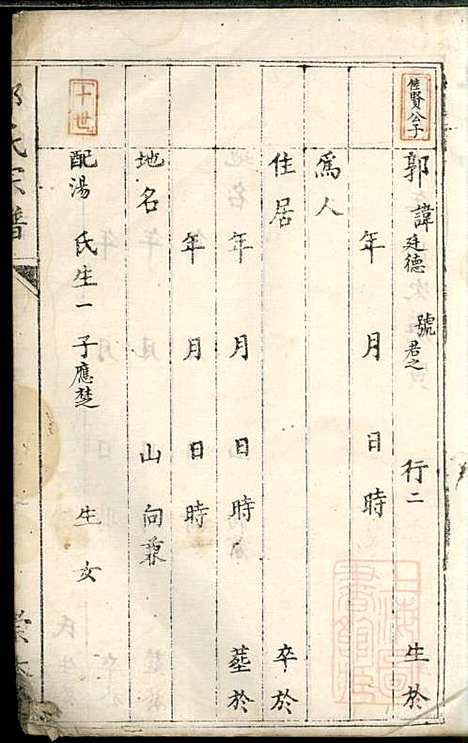 隹賢公子
郭 諱廷德 號君之 行二 生於
年 月 日 時
為人
住居 卒於
年 月 日 時 墓於
年 月 日 時
地名 山 向兼
十世
配湯 氏生一 子應楚 生 女
氏宗譜